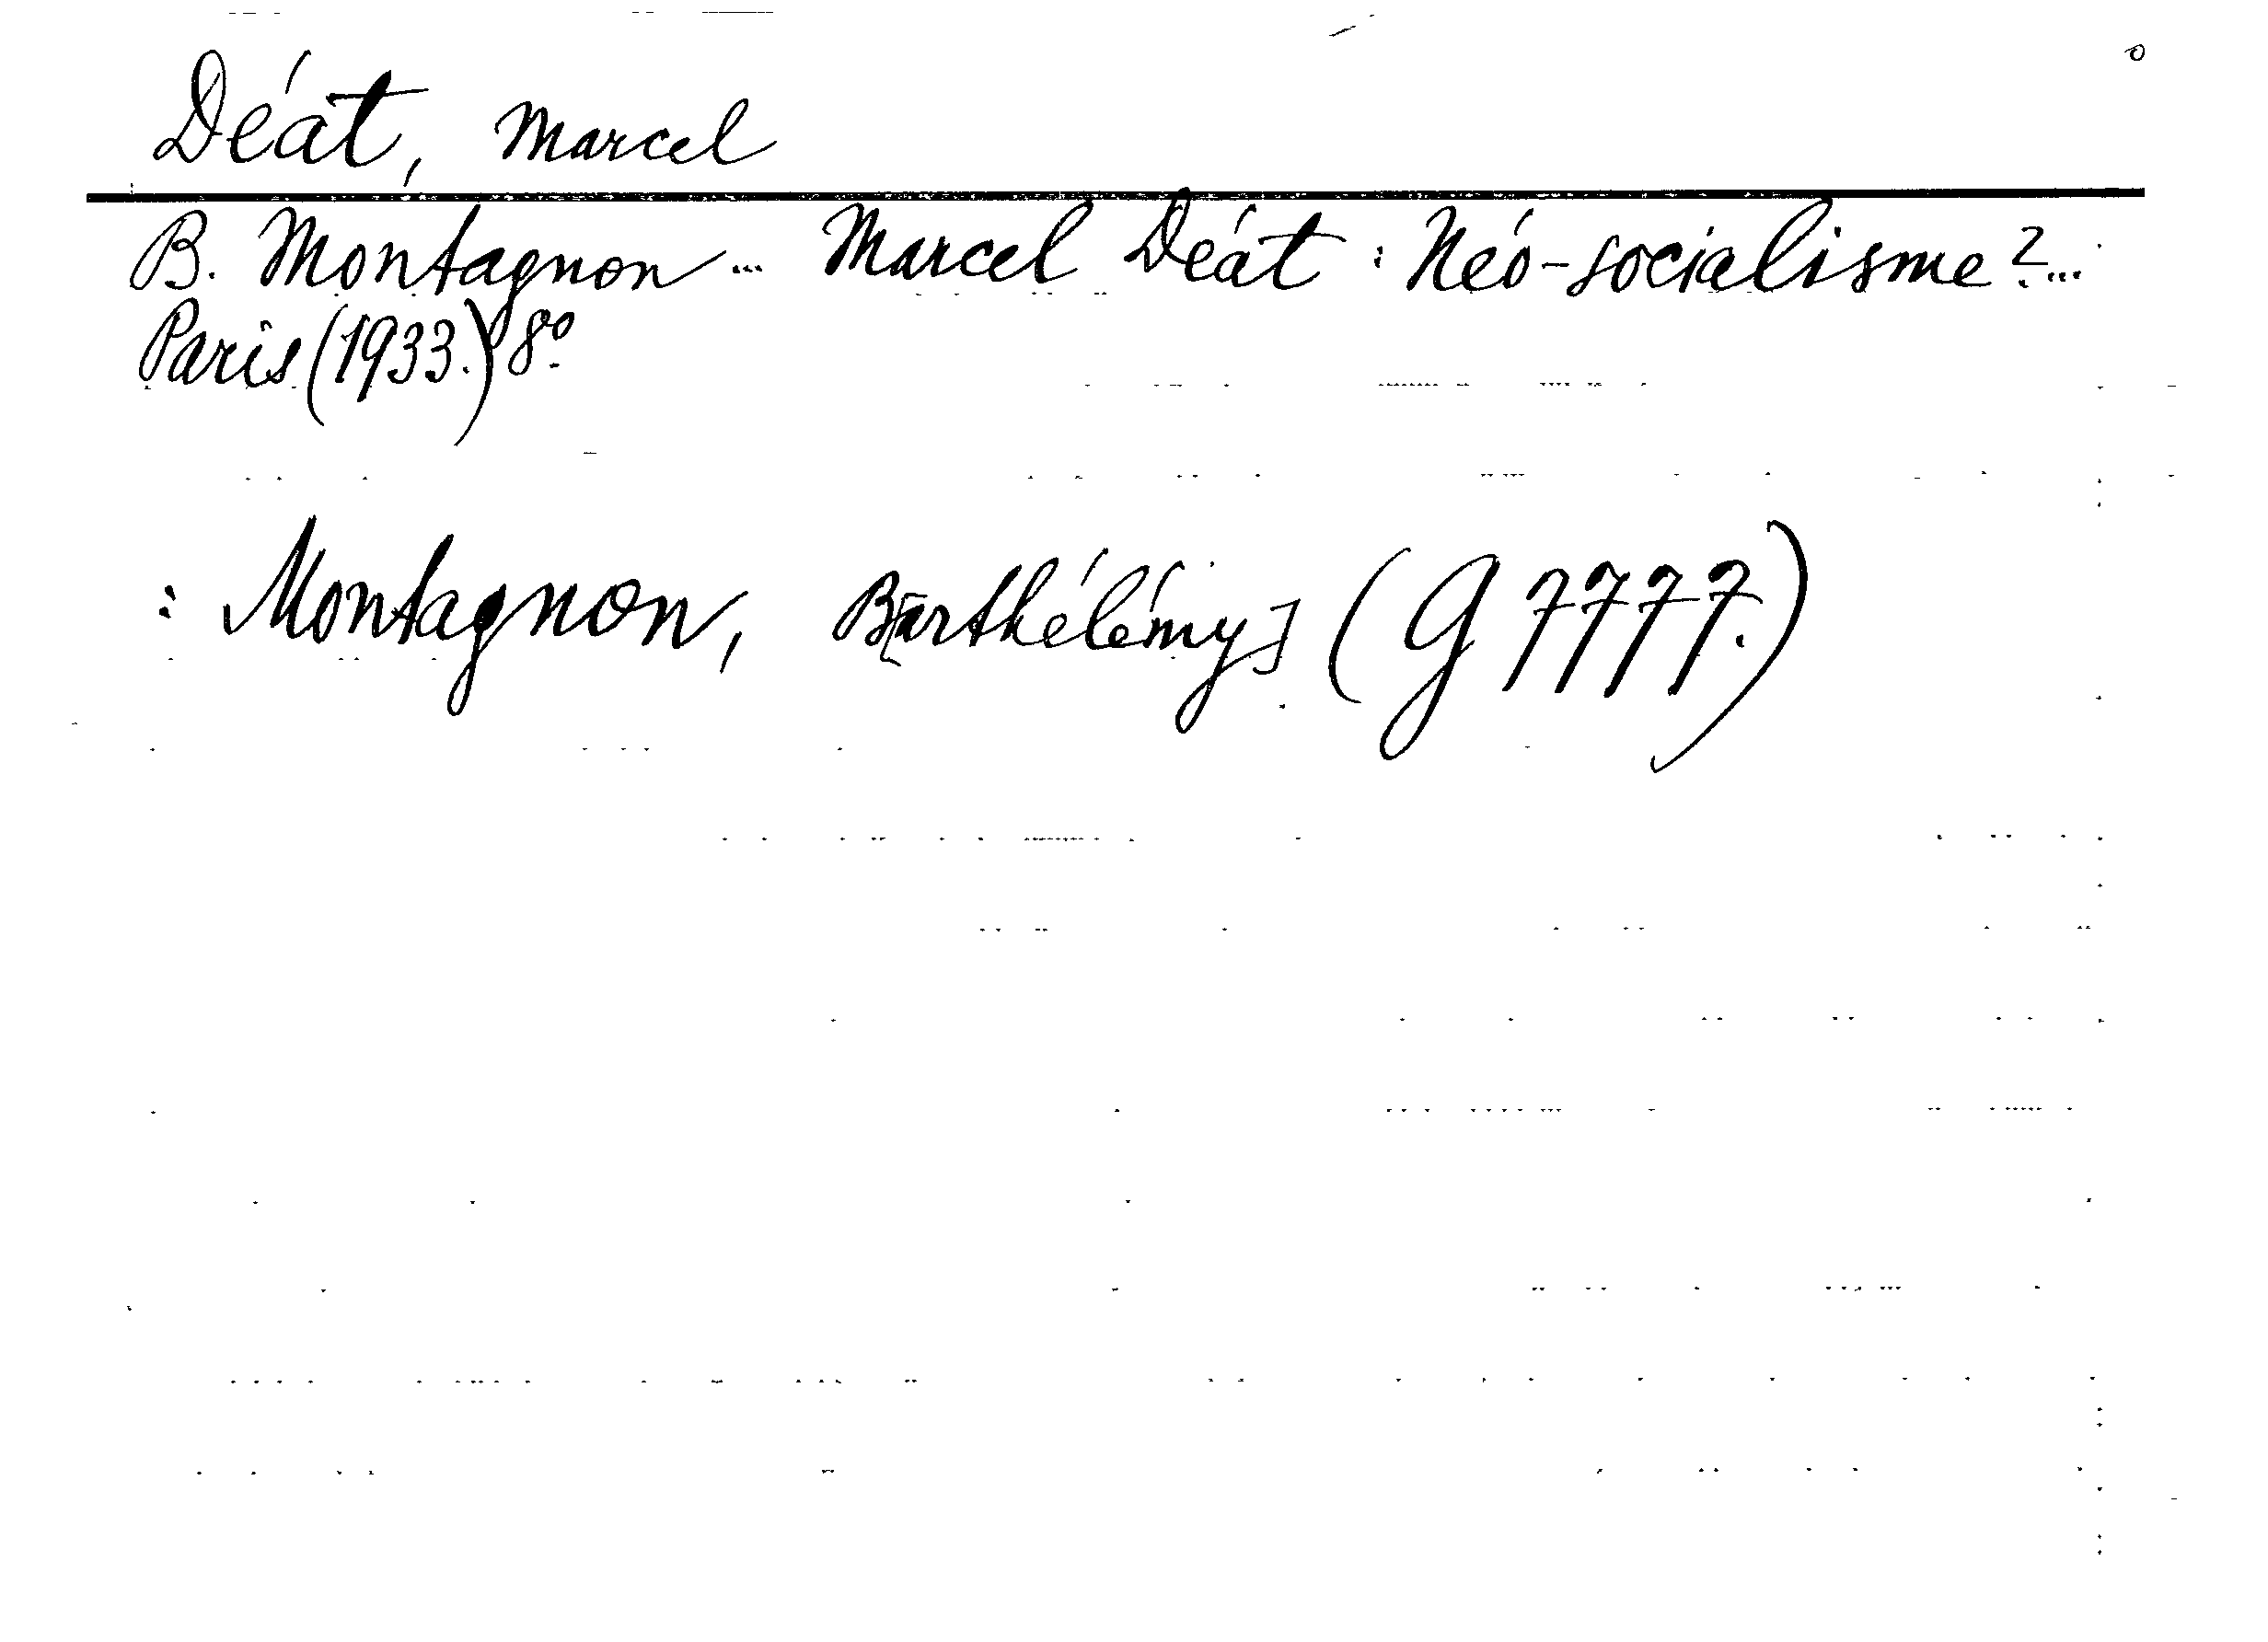 Déat, Marcel
B. Montagnon ... Marcel Déat : Néo-socialisme ? ...
Paris (1933.) 8º
: Montagnon, B[arthélémy] (G 7777.)